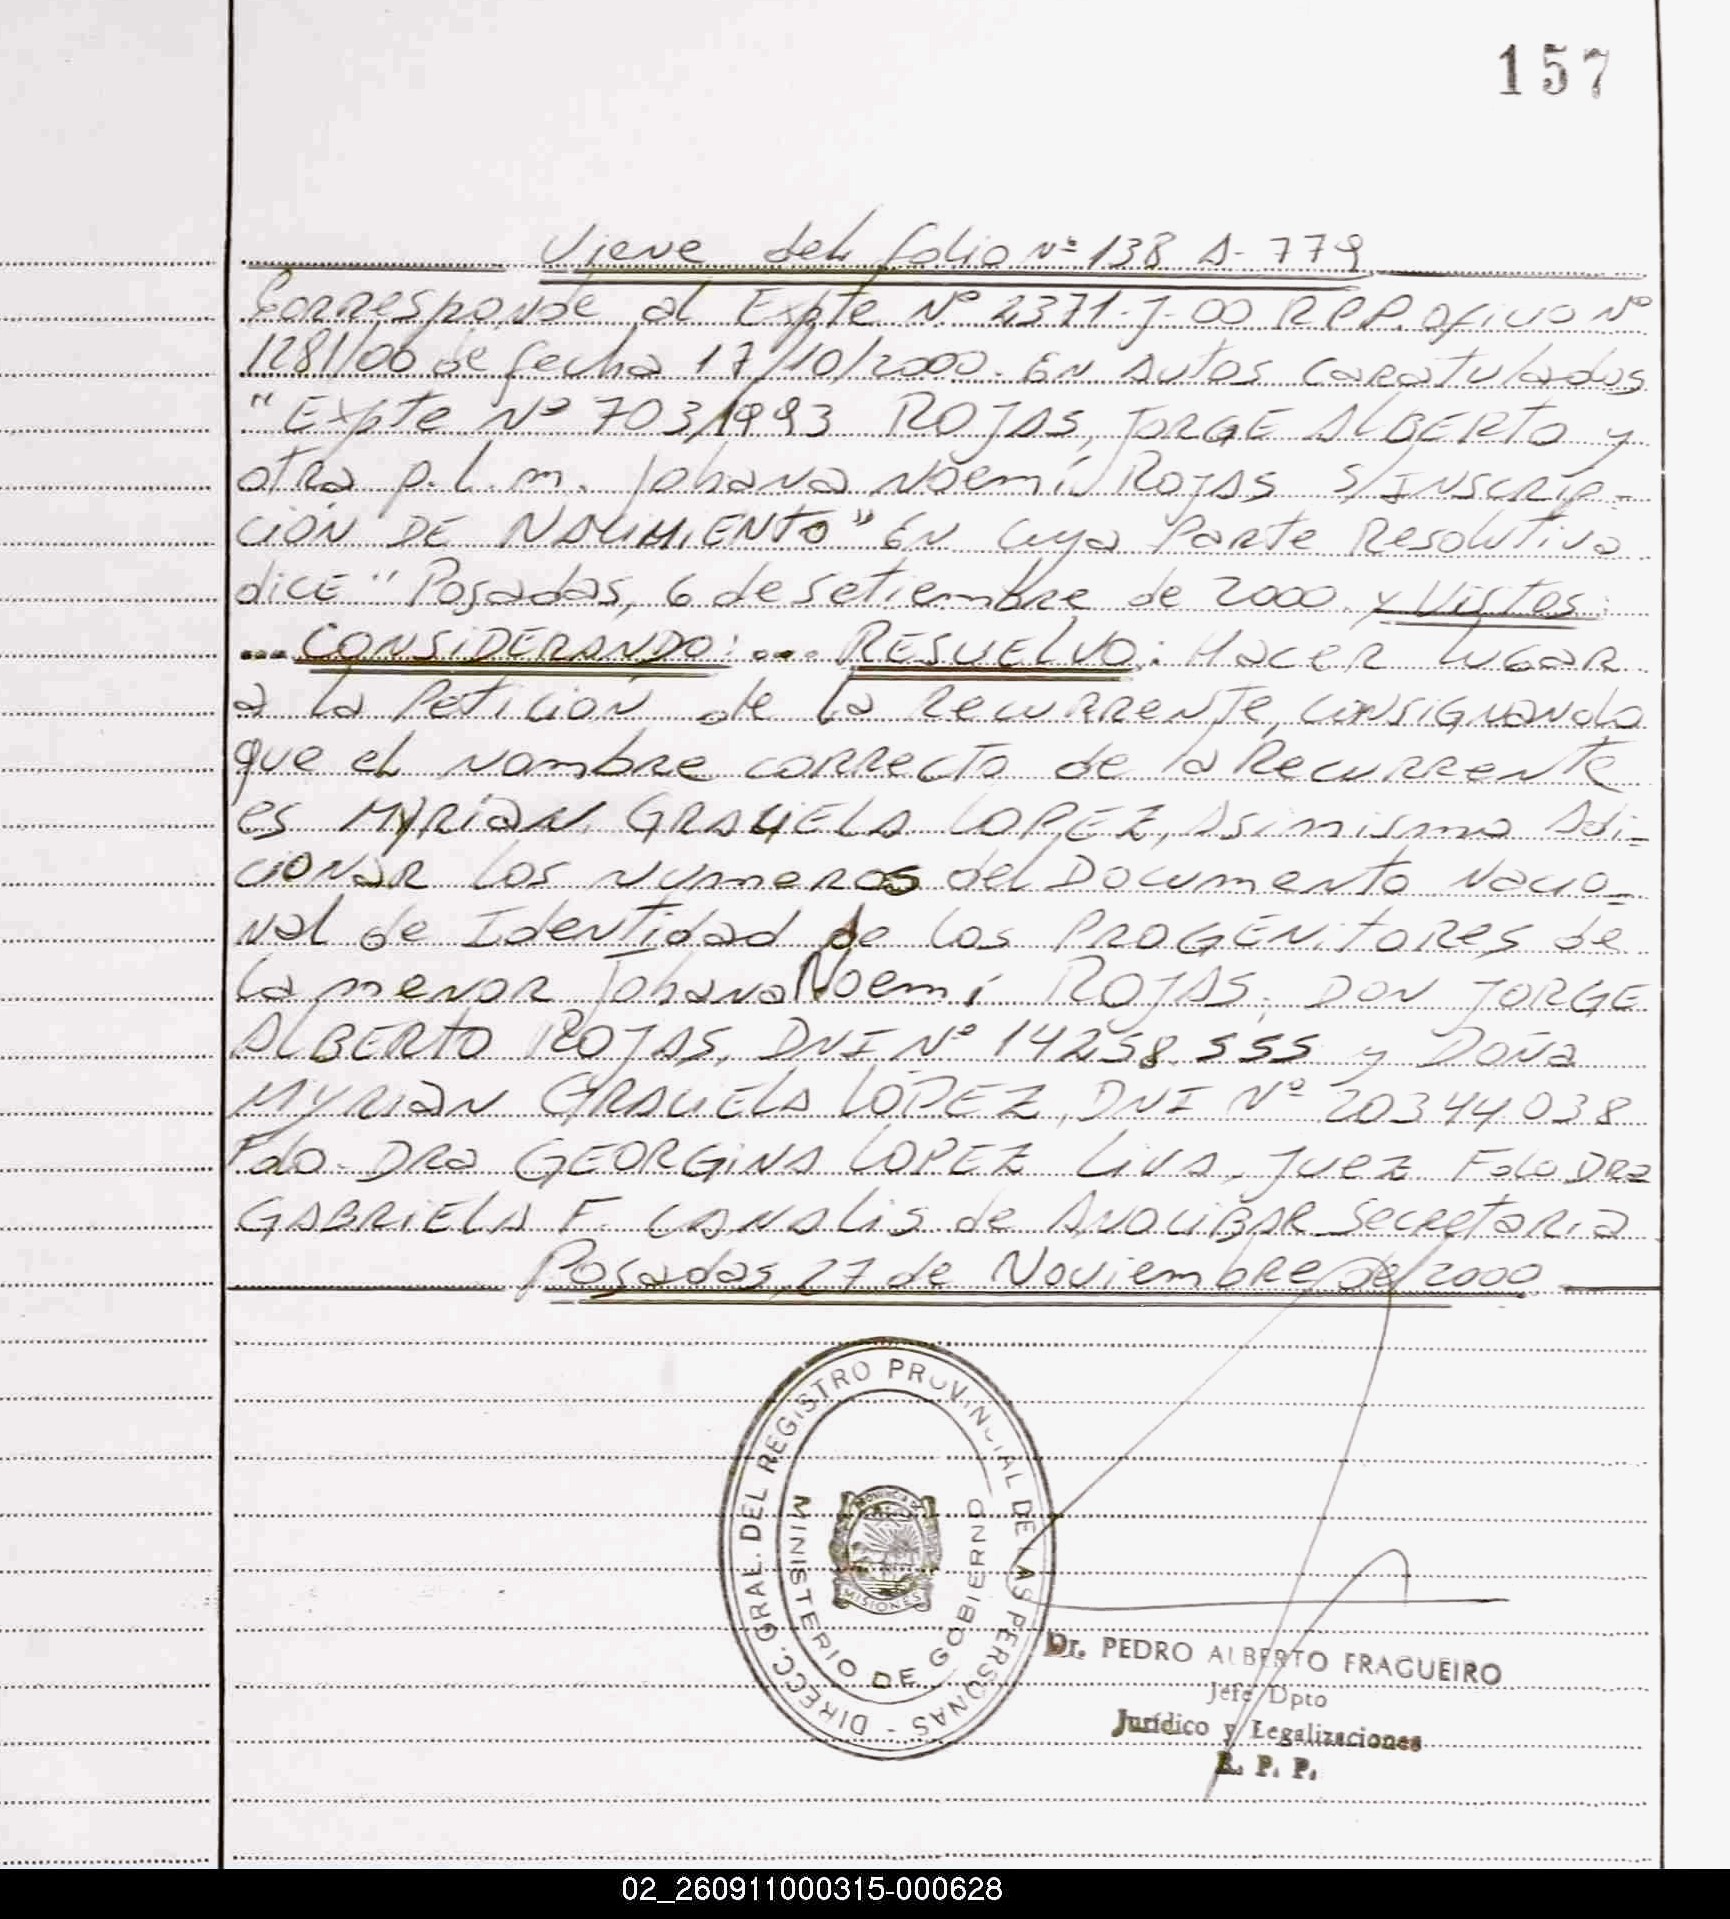 157
Viene del folio Nº 138 A- 779
Corresponde al Expte Nº 2371-J-00 R.P.P. Oficio Nº
1281/00 de fecha 17/10/2000. En Autos Caratulados
"Expte Nº 703/1993 ROJAS, JORGE ALBERTO y
otra p.l.m. Johana Noemí ROJAS S/INSCRIP-
CIÓN DE NACIMIENTO" En cuya Parte Resolutiva
dice "Posadas, 6 de setiembre de 2000. y Vistos:
... CONSIDERANDO: ... RESUELVO: Hacer lugar
a la Petición de la Recurrente, consignando
que el nombre correcto de la Recurrente
es MYRIAN GRACIELA LOPEZ, Asimismo Adi-
cionar los numeros del Documento Nacio-
nal de Identidad de los PROGENITORES de
la menor Johana Noemí ROJAS, DON JORGE
ALBERTO ROJAS, DNI Nº 14258.555 y Doña
MYRIAN GRACIELA LÓPEZ, DNI Nº 20344038
Fdo. DRA GEORGINA LOPEZ LIVA, JUEZ Fdo DRA
GABRIELA F. CANALIS de ANOCIBAR Secretaria
Posadas, 27 de Noviembre de 2000
DIRECC. GRAL. DEL REGISTRO PROVINCIAL DE LAS PERSONAS -
MINISTERIO DE GOBIERNO
PROVINCIA DE
MISIONES
Dr. PEDRO ALBERTO FRAGUEIRO
Jefe Dpto
Jurídico y Legalizaciones
R. P. P.
02_260911000315-000628